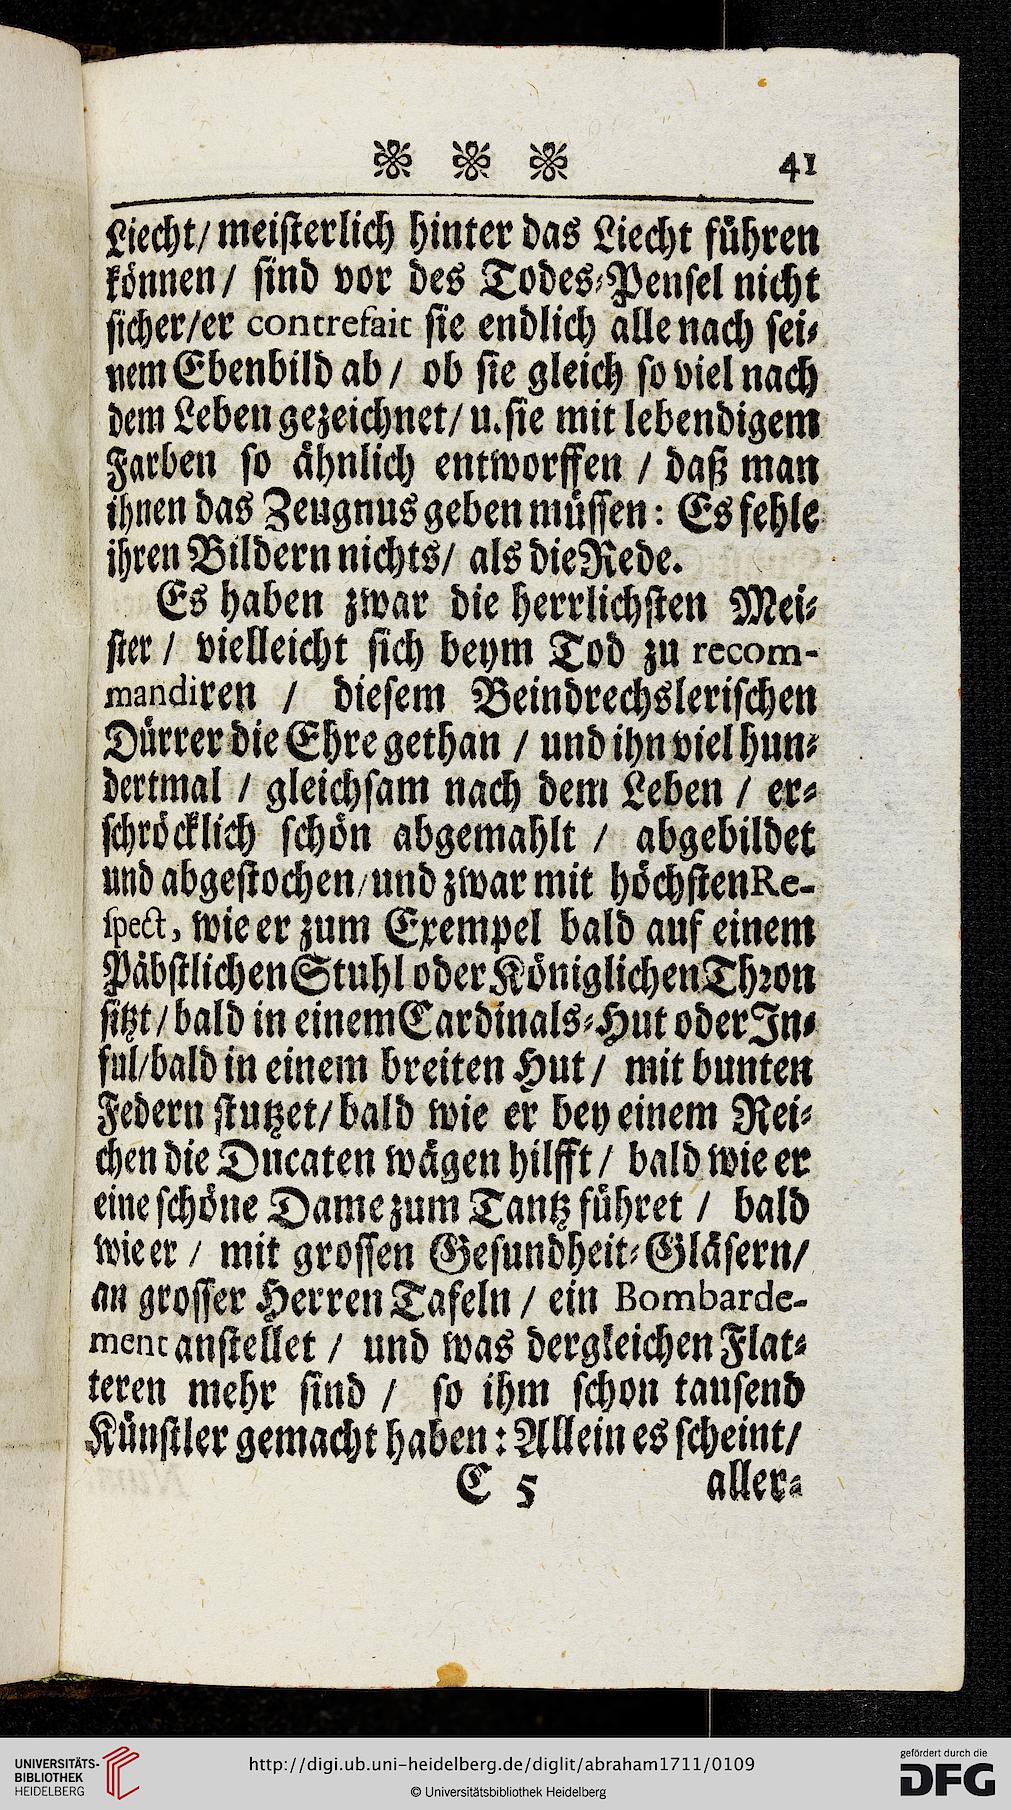 41
Liecht/ meisterlich hinter das Liecht führen
können/ sind vor des Todes-Pensel nicht
sicher/er contrefait sie endlich alle nach sei-
nem Ebenbild ab/ ob sie gleich so viel nach
dem Leben gezeichnet/ u. sie mit lebendigem
Farben so ähnlich entworffen / daß man
ihnen das Zeugnus geben müssen: Es fehle
ihren Bildern nichts/ als die Rede.
Es haben zwar die herrlichsten Mei-
ster / vielleicht sich beym Tod zu recom-
mandiren / diesem Beindrechslerischen
Dürrer die Ehre gethan / und ihn viel hun-
dertmal / gleichsam nach dem Leben / er-
schröcklich schön abgemahlt / abgebildet
und abgestochen/und zwar mit höchsten Re-
spect, wie er zum Exempel bald auf einem
Päbstlichen Stuhl oder Königlichen Thron
sitzt/ bald in einem Cardinals-Hut oder In-
ful/bald in einem breiten Hut/ mit bunten
Federn stutzet/ bald wie er bey einem Rei-
chen die Ducaten wägen hilfft/ bald wie er
eine schöne Dame zum Tantz führet / bald
wie er / mit grossen Gesundheit-Gläsern/
an grosser Herren Tafeln / ein Bombarde-
ment anstellet / und was dergleichen Flat-
teren mehr sind / so ihm schon tausend
Künstler gemacht haben: Allein es scheint/
C 5 aller-
UNIVERSITÄTS-
BIBLIOTHEK
HEIDELBERG
http://digi.ub.uni-heidelberg.de/diglit/abraham1711/0109
© Universitätsbibliothek Heidelberg
gefördert durch die
DFG